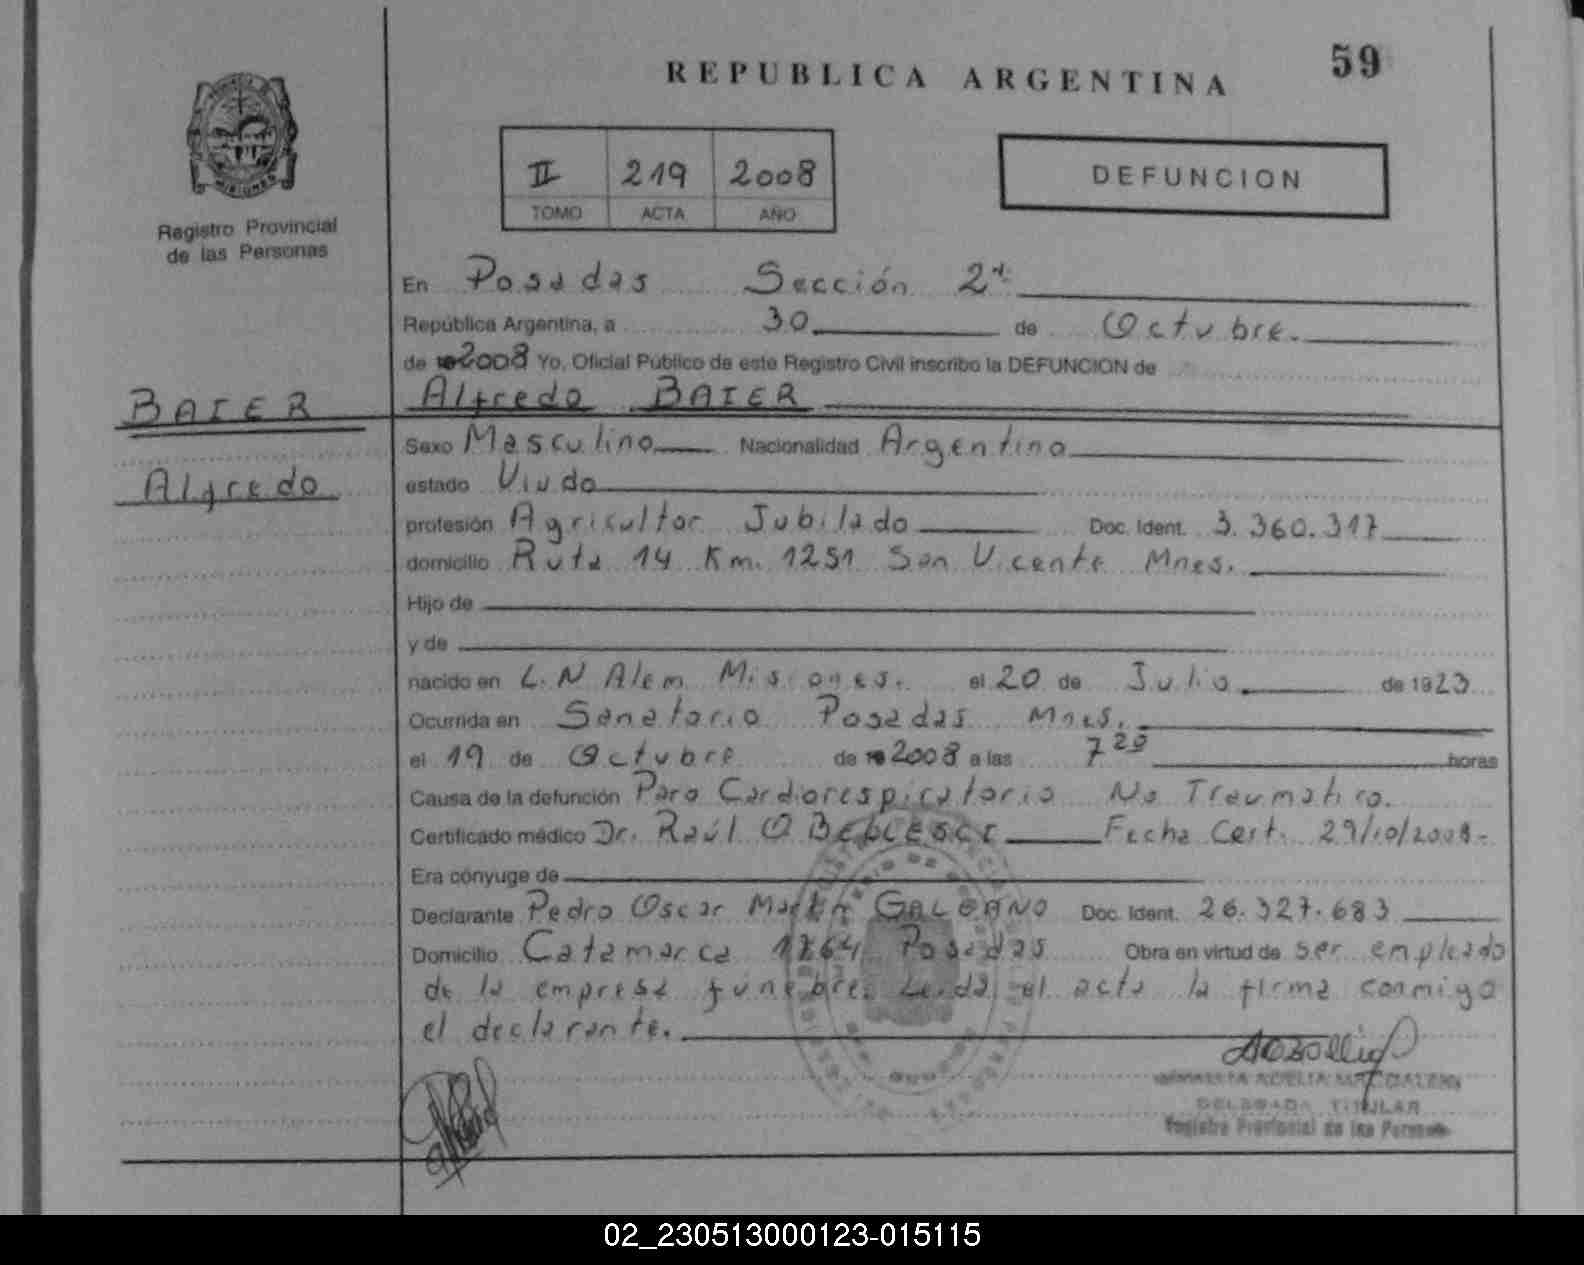 59
REPUBLICA ARGENTINA
II 219 2008
TOMO ACTA AÑO
DEFUNCION
MISIONES
Registro Provincial
de las Personas
En Posadas Sección 2ª
República Argentina, a 30 de Octubre.
de 2008 Yo, Oficial Público de este Registro Civil inscribo la DEFUNCION de
BAIER
Alfredo
Alfredo BAIER
Sexo Masculino Nacionalidad Argentino
estado Viudo
profesión Agricultor Jubilado Doc. Ident. 3.360.317
domicilio Ruta 14 Km. 1251 San Vicente Mnes.
Hijo de
y de
nacido en L.N Alem Misiones. el 20 de Julio de 1923
Ocurrida en Sanatorio Posadas Mnes.
el 19 de Octubre de 2008 a las 7 20 horas
Causa de la defunción Paro Cardiorespiratorio No Traumatico.
Certificado médico Dr. Raúl O Fecha Cert. 29/10/2008-
Era cónyuge de
Declarante Pedro Oscar Martin GALEANO Doc. Ident. 26.327.683
Domicilio Catamarca Posadas Obra en virtud de ser empleado
de la empresa fúnebre. Leida el acta la firma conmigo
el declarante.
DELEGADA TITULAR
Registro Provincial de las Personas
02_230513000123-015115